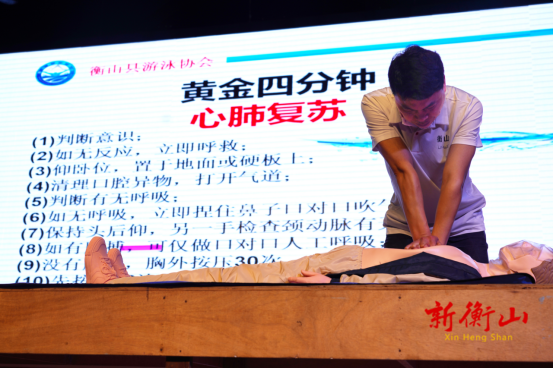 衡山县游泳协会
黄金四分钟
心肺复苏
(1)判断意识；
(2)如无反应，立即呼救；
(3)仰卧位，置于地面或硬板上；
(4)清理口腔异物，打开气道；
(5)判断有无呼吸；
(6)如无呼吸，立即捏住鼻子口对口吹
(7)保持头后仰，另一手检查颈动脉有
(8)如有 搏，可仅做口对口人工呼吸；
(9)没有 胸外按压30次
(10)先
衡山
新衡山
Xin Heng Shan